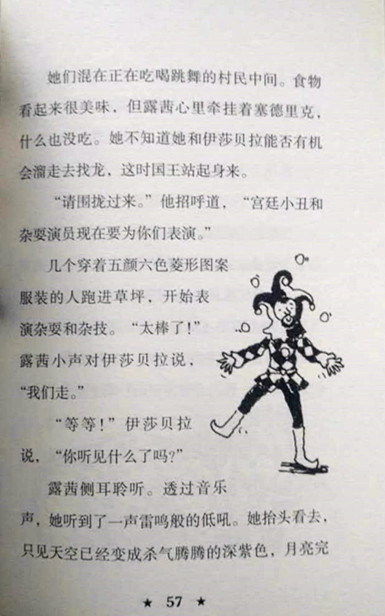 她们混在正在吃喝跳舞的村民中间。食物
看起来很美味，但露茜心里牵挂着塞德里克，
什么也没吃。她不知道她和伊莎贝拉能否有机
会溜走去找龙，这时国王站起身来。
“请围拢过来。”他招呼道，“宫廷小丑和
杂耍演员现在要为你们表演。”
几个穿着五颜六色菱形图案
服装的人跑进草坪，开始表
演杂耍和杂技。“太棒了！”
露茜小声对伊莎贝拉说，
“我们走。”
“等等！”伊莎贝拉
说，“你听见什么了吗？”
露茜侧耳聆听。透过音乐
声，她听到了一声雷鸣般的低吼。她抬头看去，
只见天空已经变成杀气腾腾的深紫色，月亮完
★ 57 ★